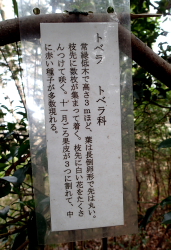 トベラ　トベラ科
常緑低木で高さ3mほど、葉は長倒卵形で先は丸い。
枝先に数枚が集まって着く。枝先に白い花をたくさ
んつけて咲く。十一月ごろ果皮が3つに割れて、中
に赤い種子が多数現れる。